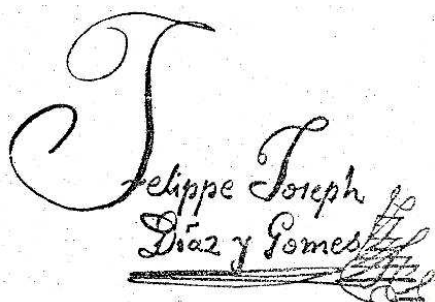 Felippe Joseph
Diaz y Gomes